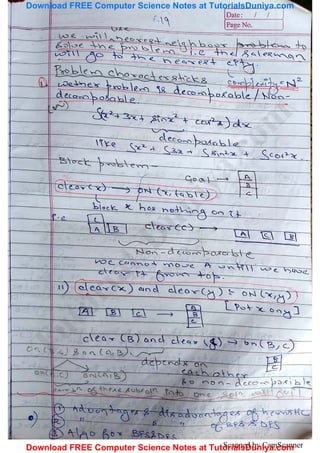 Download FREE Computer Science Notes at TutorialsDuniya.com
Date: / /
Page No.
6.19
use
we will nearest neighbour problem to
solve the problem i.e the salesman
will go to the nearest city.
Problem characterstics complexity = N²
1. wether problem is decomposable / Non-
decomposable.
∫(x² + 3x + sin²x + cos²x) dx
decomposable
like ∫x² + ∫3x + ∫sin²x + ∫cos²x
Block problem-
Goal → A
B
C
clear(x) → ON(x, table)
block x has nothing on it
i.e C
A B clear(c) → A C B
Non-decomposable
we cannot move A until we have
clear it from top.
ii) clear(x) and clear(y) → ON(x,y)
[Put x on y]
A B C → A
B
C
clear (B) and clear → on (B, C)
B
C
on(B,C) & on(A,B)
depends on
ON(A,B) each other
so non-decomposible
of these into one
① Advantages & disadvantages of heuristic
② " " " of BFS & DFS
③ Algo for BFS & DFS
Scanned by CamScanner
Download FREE Computer Science Notes at TutorialsDuniya.com